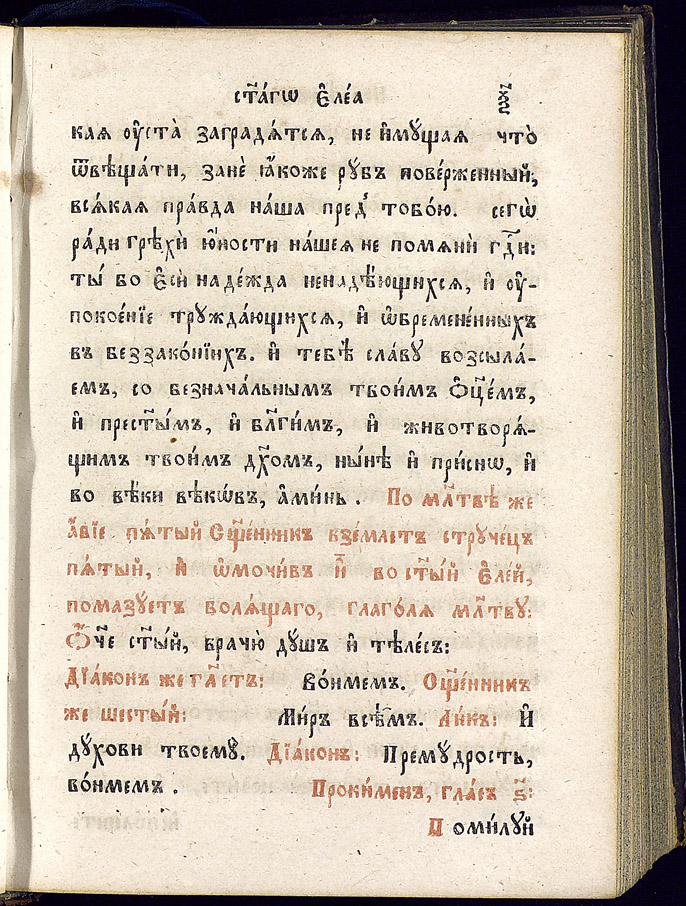 ст҃а́гѡ є҆ле́а
кая ᲂу҆ста̀ заградѧ́тся, не и҆мꙋщая что̀
ѿвѣща́ти, занѐ ꙗ҆́коже рꙋбъ пове́рженный,
всѧ́кая пра́вда на́ша пред̾ тобо́ю. сегѡ̀
ра́ди грѣхѝ ю҆́ности на́шея не помянѝ гдⷭ҇и:
ты́ бо є҆сѝ наде́жда ненадѣ́ющихся, и҆ ᲂу҆-
покое́нїе трꙋжда́ющихся, и҆ ѡ҆бремене́нныхъ
въ беззако́нїихъ. и҆ тебѣ̀ сла́вꙋ возсыла́-
емъ, со безнача́льнымъ твои́мъ ѻ҆ц҃е́мъ,
и҆ прест҃ы́мъ, и҆ бл҃ги́мъ, и҆ животворѧ́-
щимъ твои́мъ дх҃омъ, ны́нѣ и҆ при́снѡ, и҆
во вѣ́ки вѣкѡ́въ, а҆ми́нь. По мл҃твѣ же
а҆́бїе пѧ́тый Сщ҃е́нникъ взе́млетъ стрꙋче́цъ
пѧ́тый, и҆ ѡ҆мочи́въ и҆̀ во ст҃ы́й є҆ле́й,
помазꙋетъ болѧ́щаго, глаго́ля мл҃твꙋ:
Ѻ҆́ч҃е ст҃ы́й, врачю̀ дꙋшъ и҆ тѣле́съ:
Дїа́конъ же гл҃етъ: Во́нмемъ. Сщ҃е́нникъ
же шесты́й: Ми́ръ всѣ̑мъ. Ли́къ: И҆
дꙋ́хови твоемꙋ̀. Дїа́конъ: Премꙋ́дрость,
во́нмемъ. Проки́менъ, гла́съ ѕ҃:
Поми́лꙋй